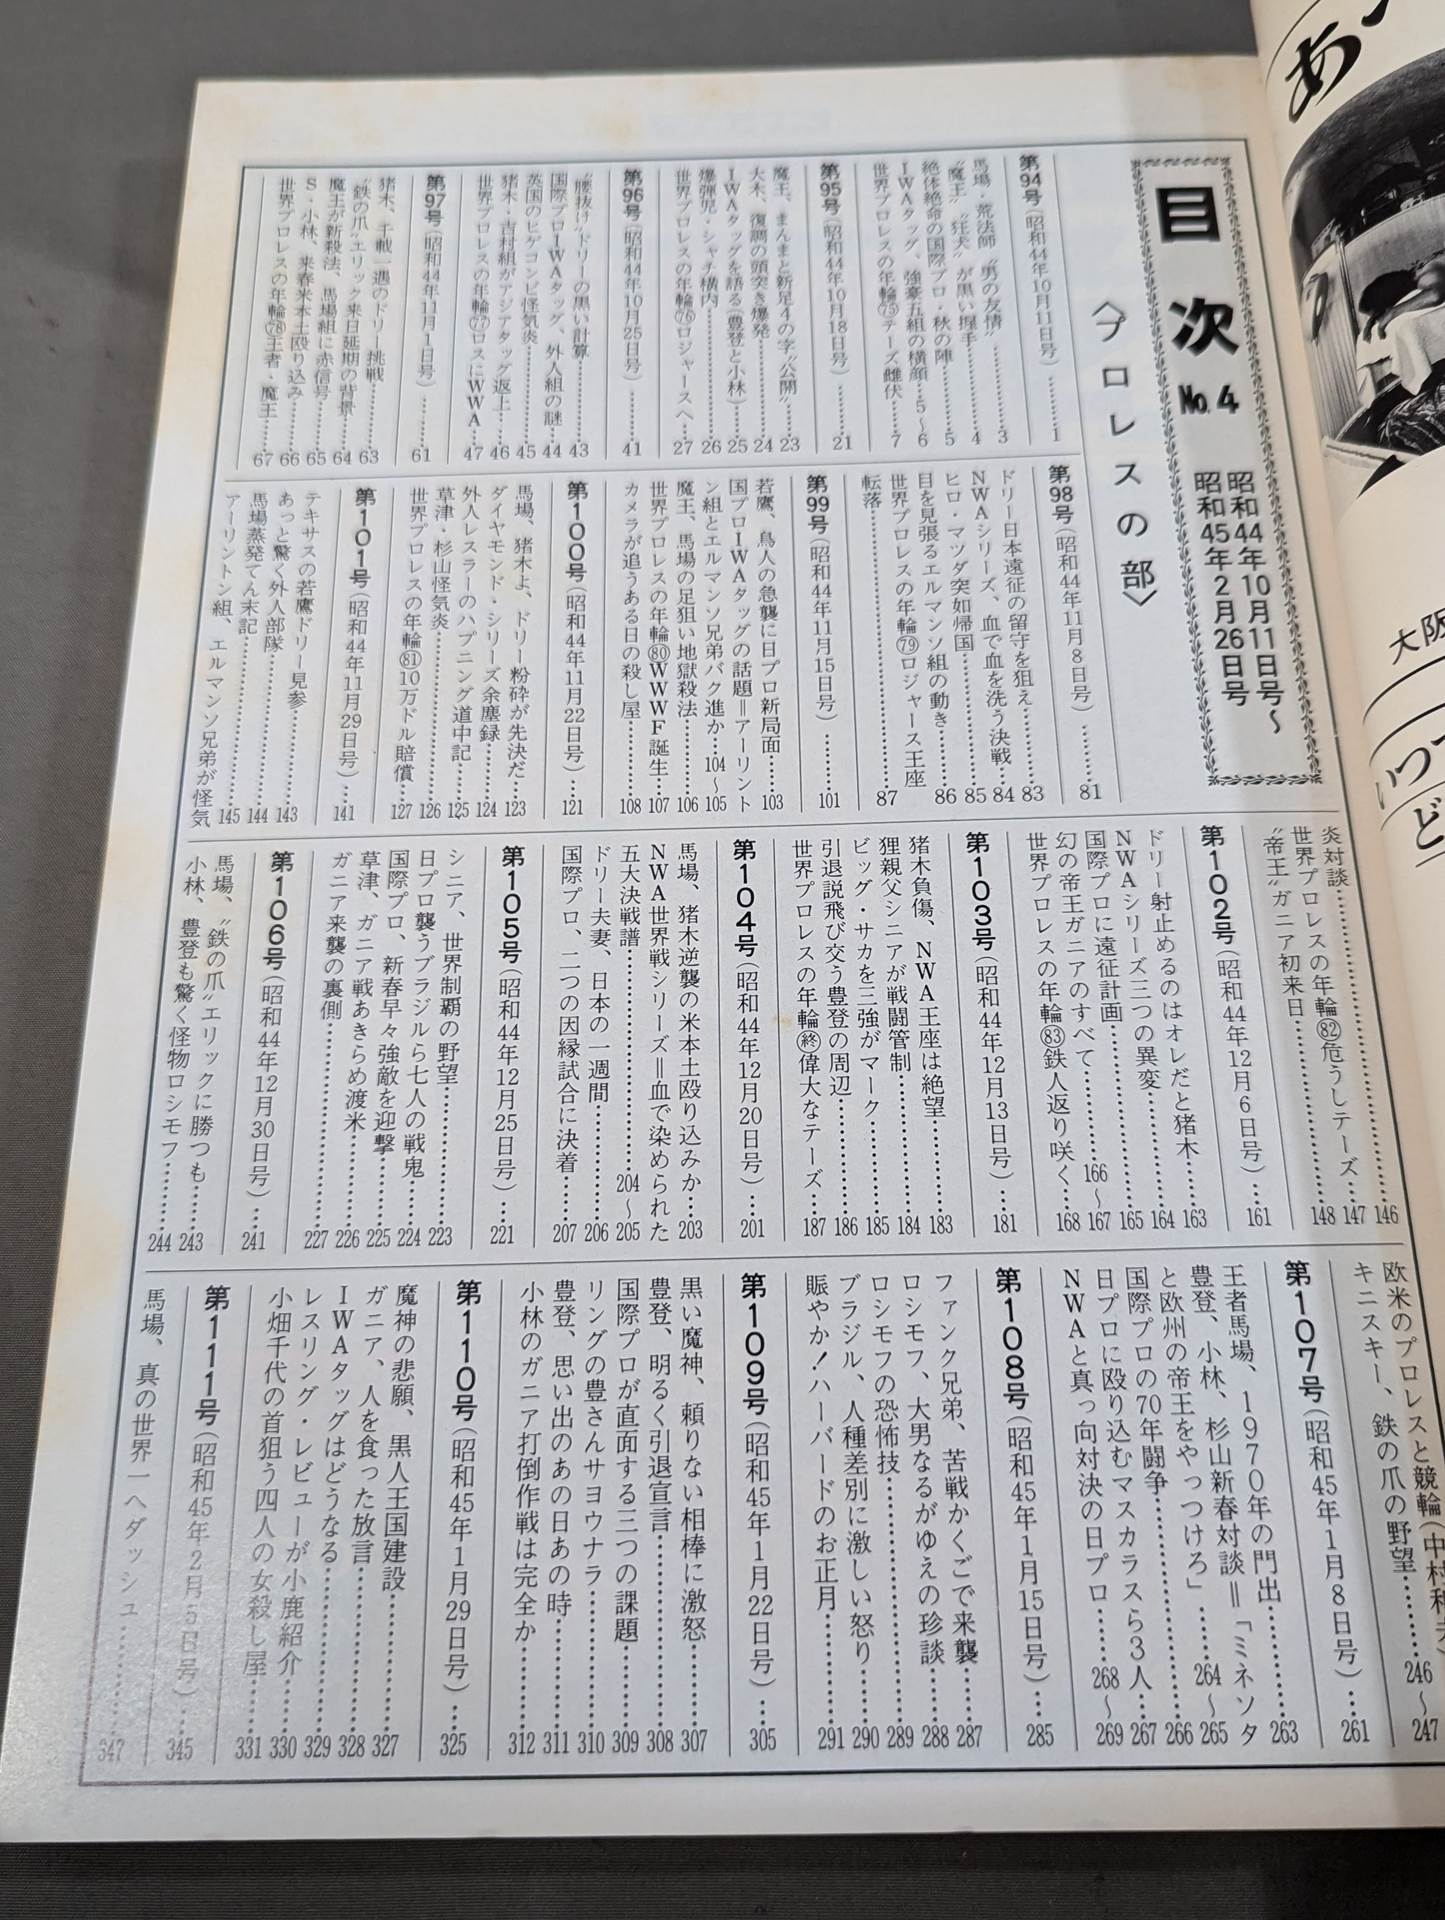 目次 No.4 昭和44年10月11日号〜昭和45年2月26日号
〈プロレスの部〉
第94号(昭和44年10月11日号)……1
馬場・荒法師〝男の友情〟……3
〝魔王〟〝狂犬〟が黒い握手……4
絶体絶命の国際プロ・秋の陣……5
IWAタッグ、強豪五組の横顔…5〜6
世界プロレスの年輪㊆テーズ雌伏……7
第95号(昭和44年10月18日号)……21
魔王、まんまと新足4の字〝公開〟…23
大木、復調の頭突き爆発……24
IWAタッグを語る(豊登と小林)……25
爆弾児・シャチ横内……26
世界プロレスの年輪ロジャースへ…27
第96号(昭和44年10月25日号)……41
〝腰抜け〟ドリーの黒い計算……43
国際プロIWAタッグ、外人組の謎…44
英国のヒゲコンビ怪気炎……45
猪木・吉村組がアジアタッグ返上…46
世界プロレスの年輪ロスにWWA…47
第97号(昭和44年11月1日号)……61
猪木、千載一遇のドリー挑戦……63
〝鉄の爪〟エリック来日延期の背景…64
魔王が新殺法、馬場組に赤信号……65
S・小林、来春米本土殴り込み……66
世界プロレスの年輪王者・魔王…67
第98号(昭和44年11月8日号)……81
ドリー日本遠征の留守を狙え……83
NWAシリーズ、血で血を洗う決戦…84
ヒロ・マツダ突如帰国……85
目を見張るエルマンソ組の動き……86
世界プロレスの年輪㊆ロジャース王座
転落……87
第99号(昭和44年11月15日号)……101
若鷹、鳥人の急襲に日プロ新局面…103
国プロIWAタッグの話題=アーリント
ン組とエルマンソ兄弟バク進か…104〜105
魔王、馬場の足狙い地獄殺法……106
世界プロレスの年輪WWWF誕生…107
カメラが追うある日の殺し屋……108
第100号(昭和44年11月22日号)…121
馬場、猪木よ、ドリー粉砕が先決だ…123
ダイヤモンド・シリーズ余塵録……124
外人レスラーのハプニング道中記…125
草津・杉山怪気炎……126
世界プロレスの年輪10万ドル賠償…127
第101号(昭和44年11月29日号)…141
テキサスの若鷹ドリー見参……143
あっと驚く外人部隊……144
馬場蒸発てん末記……145
アーリントン組、エルマンソ兄弟が怪気
炎対談……146
世界プロレスの年輪危うしテーズ…147
〝帝王〟ガニア初来日……148
第102号(昭和44年12月6日号)…161
ドリー射止めるのはオレだと猪木…163
NWAシリーズ三つの異変……164
国際プロに遠征計画……165
幻の帝王ガニアのすべて……166〜167
世界プロレスの年輪鉄人返り咲く…168
第103号(昭和44年12月13日号)…181
猪木負傷、NWA王座は絶望……183
狸親父シニアが戦闘管制……184
ビッグ・サカを三強がマーク……185
引退説飛び交う豊登の周辺……186
世界プロレスの年輪㊡偉大なテーズ…187
第104号(昭和44年12月20日号)…201
馬場、猪木逆襲の米本土殴り込みか…203
NWA世界戦シリーズ=血で染められた
五大決戦譜……204〜205
ドリー夫妻、日本の一週間……206
国際プロ、二つの因縁試合に決着…207
第105号(昭和44年12月25日号)…221
シニア、世界制覇の野望……223
日プロ襲うブラジルら七人の戦鬼…224
国際プロ、新春早々強敵を迎撃……225
草津、ガニア戦あきらめ渡米……226
ガニア来襲の裏側……227
第106号(昭和44年12月30日号)…241
馬場、〝鉄の爪〟エリックに勝つも…243
小林、豊登も驚く怪物ロシモフ……244
欧米のプロレスと競輪(中村
キニスキー、鉄の爪の野望……246〜247
第107号(昭和45年1月8日号)…261
王者馬場、1970年の門出……263
豊登、小林、杉山新春対談=「ミネソタ
と欧州の帝王をやっつけろ」…264〜265
国際プロの70年闘争……266
日プロに殴り込むマスカラスら3人…267
NWAと真っ向対決の日プロ…268〜269
第108号(昭和45年1月15日号)…285
ファンク兄弟、苦戦かくごで来襲…287
ロシモフ、大男なるがゆえの珍談…288
ロシモフの恐怖技……289
ブラジル、人種差別に激しい怒り…290
賑やか!ハーバードのお正月……291
第109号(昭和45年1月22日号)…305
黒い魔神、頼りない相棒に激怒……307
豊登、明るく引退宣言……308
国際プロが直面する三つの課題……309
リングの豊さんサヨウナラ……310
豊登、思い出のあの日あの時……311
小林のガニア打倒作戦は完全か……312
第110号(昭和45年1月29日号)…325
魔神の悲願、黒人王国建設……327
ガニア、人を食った放言……328
IWAタッグはどうなる……329
レスリング・レビューが小鹿紹介…330
小畑千代の首狙う四人の女殺し屋…331
第111号(昭和45年2月5日号)…345
馬場、真の世界一へダッシュ……347
大阪
いつ
ど